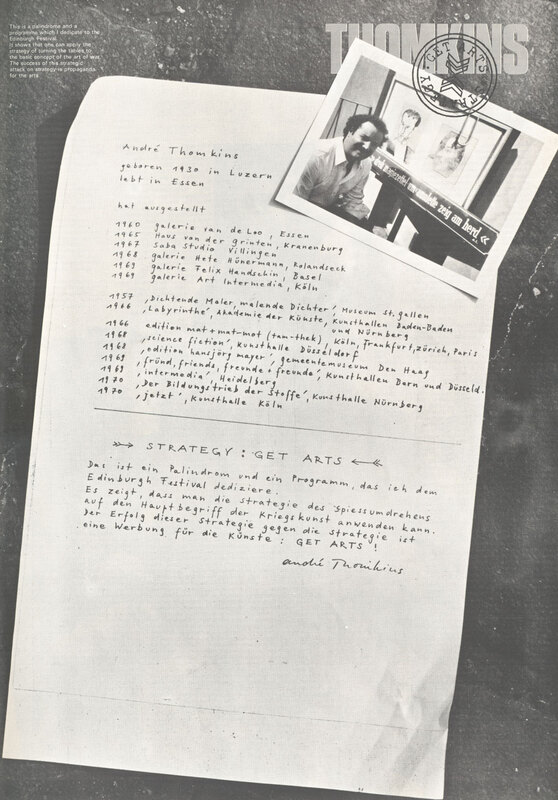 This is a palindrome and a
programme which I dedicate to the
Edinburgh Festival.
It shows that one can apply the
strategy of turning the tables to
the basic concept of the art of war.
The success of this strategic
attack on strategy is propaganda
for the arts
THOMKINS
GET ARTS STRATEGY
zeig am herd «
André Thomkins
geboren 1930 in Luzern
lebt in Essen
hat ausgestellt
1960 galerie van de Loo, Essen
1965 Haus van der grinten, Kranenburg
1967 Saba Studio Villingen
1968 galerie Hete Hünermann, Rolandseck
1969 galerie Felix Handschin, Basel
1969 galerie Art Intermedia, Köln
1957 ‚Dichtende Maler, malende Dichter', Museum St. gallen
1966 ‚Labyrinthe', Akademie der Künste, Kunsthallen Baden-Baden
und Nürnberg
1966 edition mat+mat-mot (tam-thek), Köln, Frankfurt, Zürich, Paris
1968 ‚science fiction', Kunsthalle Düsseldorf
1968 ‚edition hansjörg mayer', gemeentemuseum Den Haag
1969 ‚fründ, friends, freunde + freunde', Kunsthallen Bern und Düsseld.
1969 ‚intermedia', Heidelberg
1970 ‚Der Bildungstrieb der Stoffe', Kunsthalle Nürnberg
1970 ‚jetzt', Kunsthalle Köln
STRATEGY : GET ARTS
Das ist ein Palindrom und ein Programm, das ich dem
Edinburgh Festival dediziere.
Es zeigt, dass man die strategie des Spiessumdrehens
auf den Hauptbegriff der Kriegskunst anwenden kann.
Der Erfolg dieser Strategie gegen die strategie ist
eine Werbung für die Künste : GET ARTS !
andré Thomkins